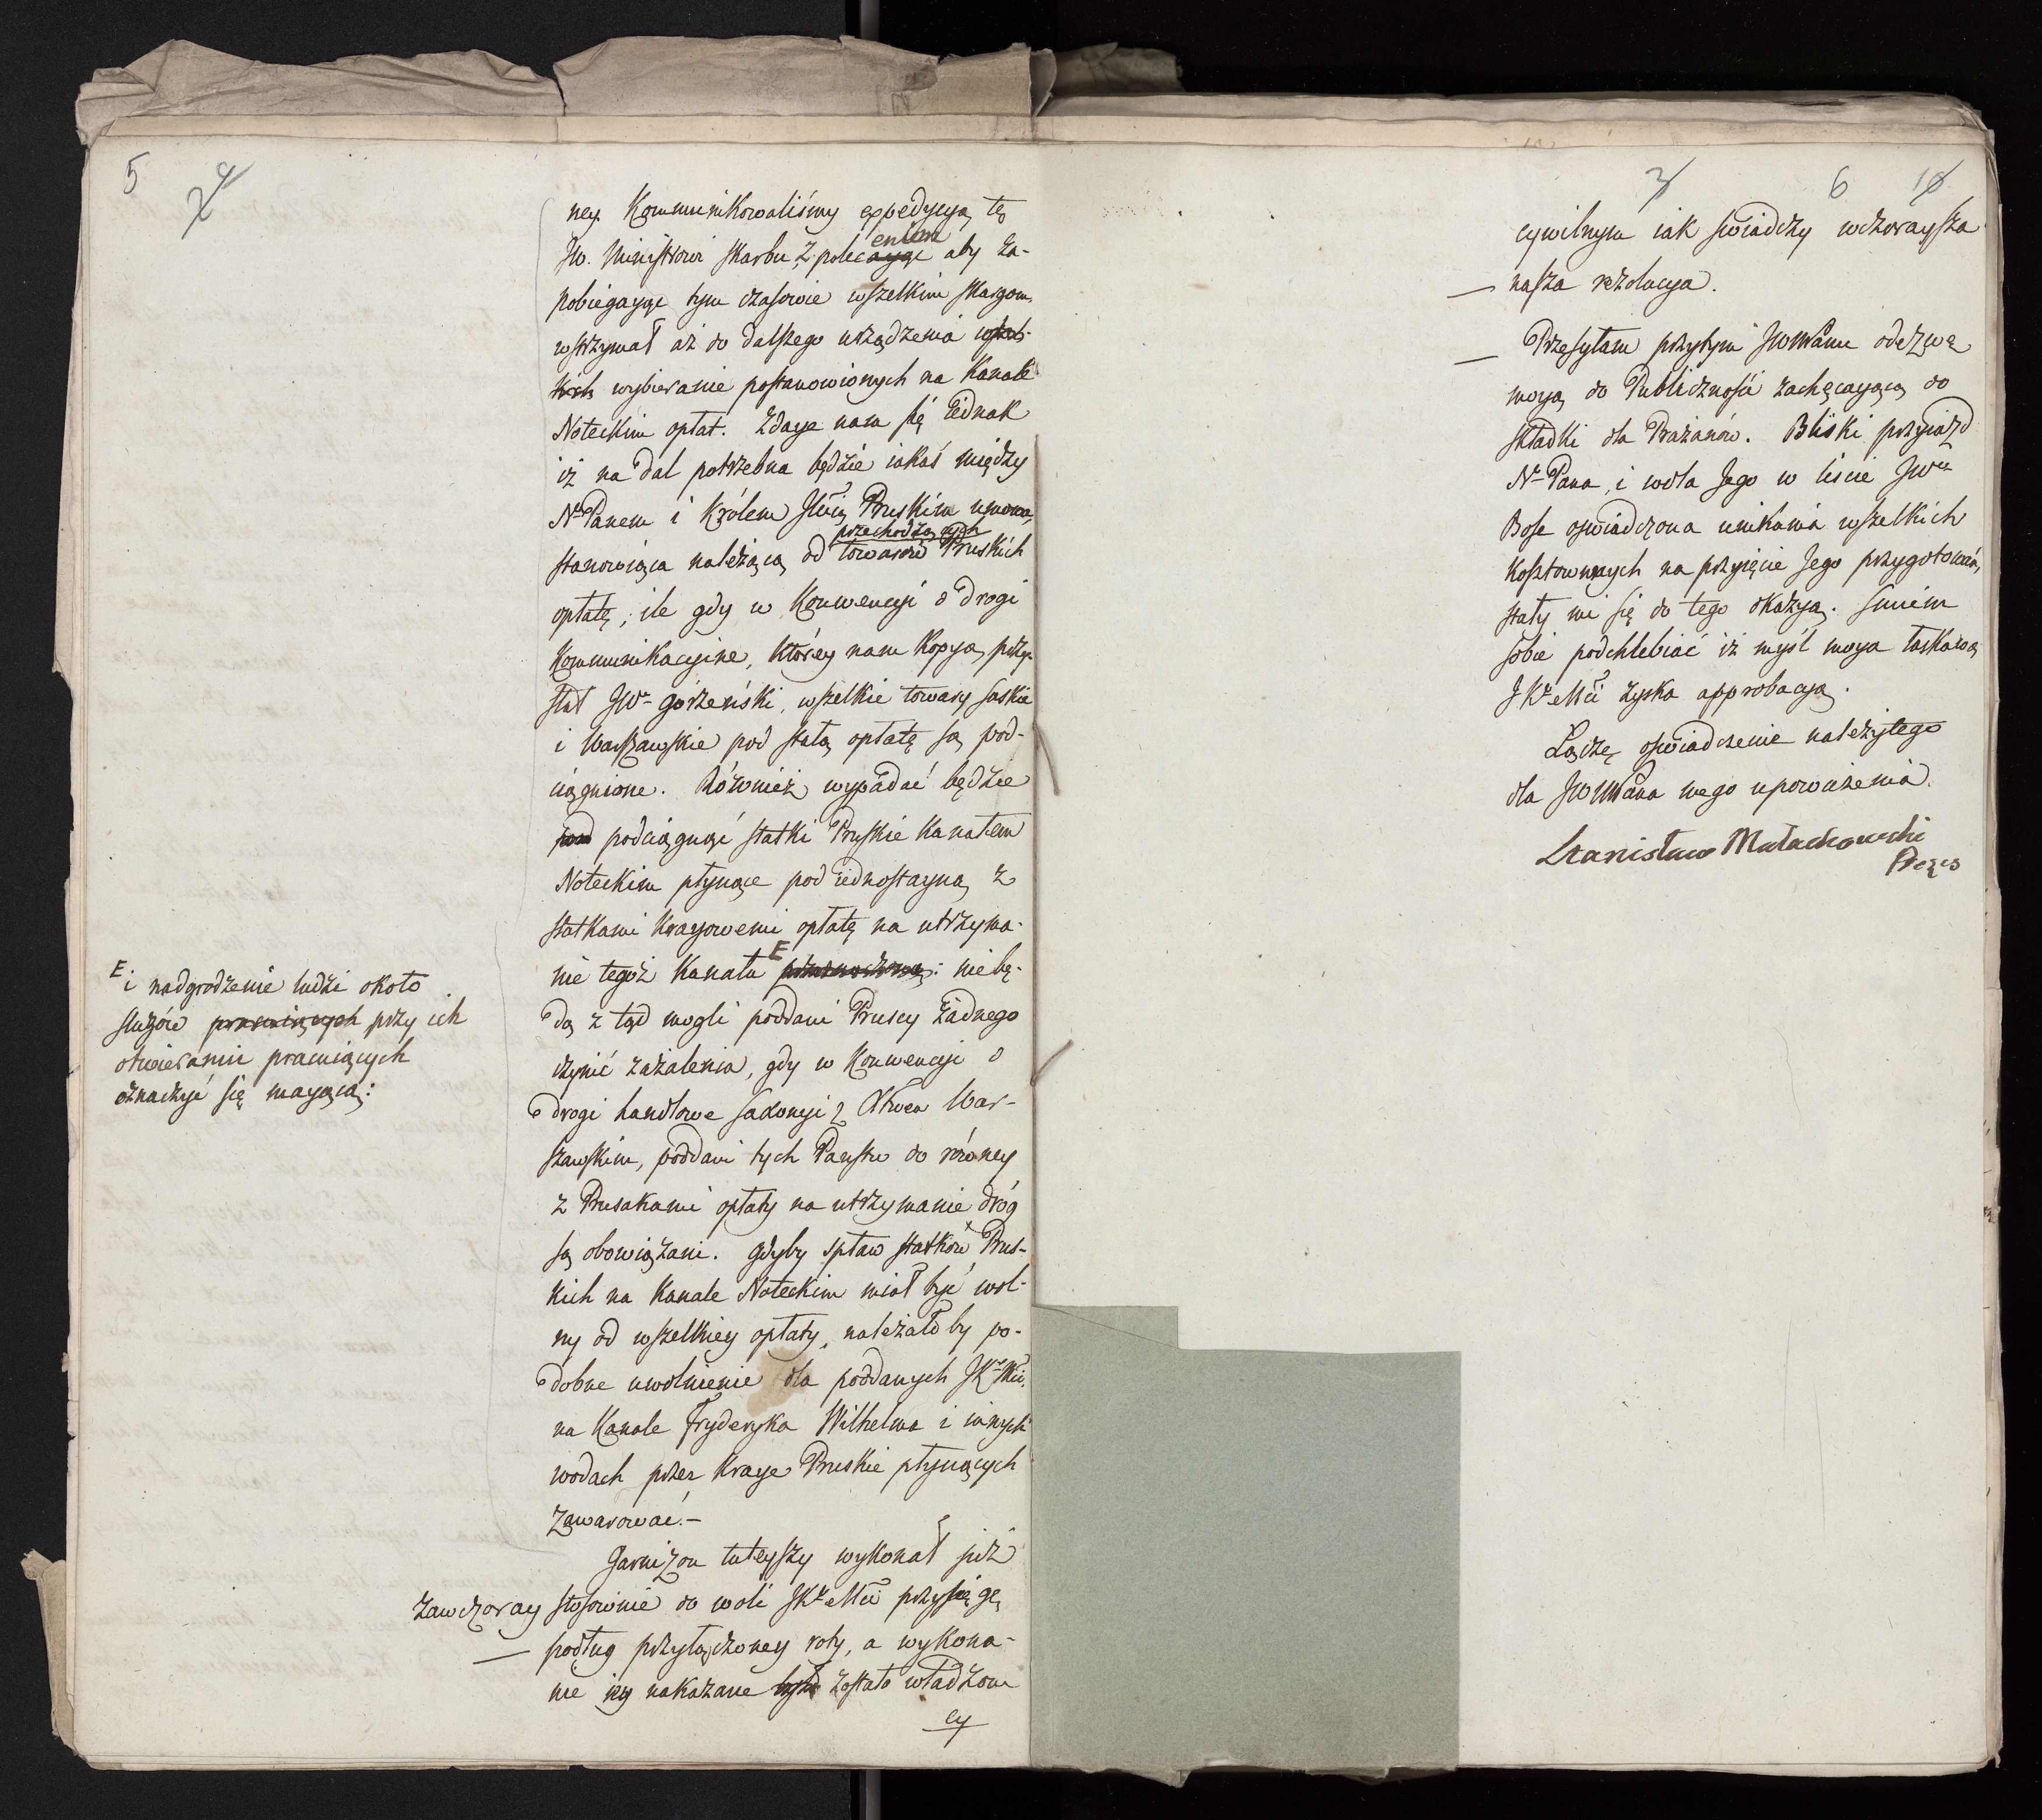 5
ney. Kommunikowaliśmy expedycyą tę
JW. Ministrowi skarbu, z poleceniem aby za-
pobiegaiąc tym czasowie wszelkim skargom,
wstrzymał aż do dalszego urządzenia wszel-
kich wybieranie postanowionych na Kanale
Noteckim opłat. Zdaye nam się iednak
iż na dal potrzebna będzie iakaś między
NPanem i Królem Jmcią Pruskim umowa,
przechodzących
stanowiąca należącą od towarów Pruskich
opłatę; ile gdy w Konwencyi o drogi
Kommunikacyine, którey nam Kopyą przy-
słał JW Górzeński, wszelkie towary saskie
i Warszawskie pod stałą opłatę są pod-
ciągnione. Również wypadać będzie
pod podciągnąć statki Pruskie Kanałem
Noteckim płynące pod iednostayną z
statkami Kraiowemi opłatę na utrzyma-
nie tegoż Kanału E : niebę-
dą z tąd mogli poddani Pruscy żadnego
czynić zażalenia, gdy w Konwencyi o
drogi handlowe Saxonyi z Xtwem War-
szawskim, poddani tych Państw do równey
z Prusakami opłaty na utrzymanie dróg
są obowiązani. Gdyby spław statków Prus-
kich na Kanale Noteckim miał być wol-
ny od wszelkiey opłaty, należałoby po-
dobne uwolnienie dla poddanych JKr Mci,
na Kanale Fryderyka Wilhelma i innych
wodach przez Kraye Pruskie płynących
zawarować.-
Garnizon tuteyszy wykonał już
zawczoray stosownie do woli JKr Mci przysięgę
podług przyłączoney roty, a wykona-
nie iey nakazane było zostało władzom
cy
E i nadgrodzenie ludzi około
śluzów pracuiących przy ich
otwieraniu pracuiących
oznaczyć się maiącą:
6
cywilnym iak świadczy wczoraysza
nasza rezolucya.
Przesyłam przytym JWWPanu odezwę
moyą do Publiczności zachęcaiącą do
składki dla Prażanów. Bliski przyiazd
N Pana, i wola Jego w liście JW
Bose oświadczona unikania wszelkich
kosztownych na przyięcie Jego przygotowań,
stały mi się do tego okazyą. Śmiem
sobie podchlebiać iż myśl moya łaskawą
JKr Mci zyska approbacyą.
Łączę oświadczenie należytego
dla JWWPana mego upoważenia.
Stanisław Małachowski
Prezes